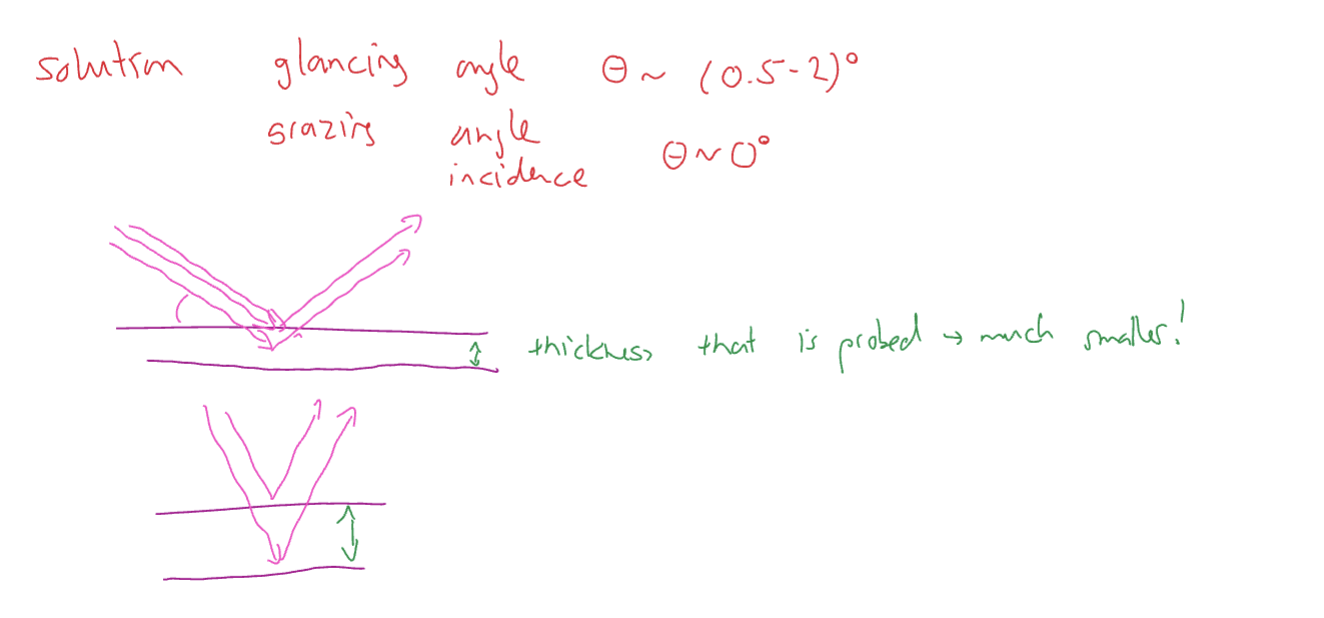 solution glancing angle θ ~ (0.5-2)°
grazing angle
incidence θ~0°
thickness that is probed → much smaller!